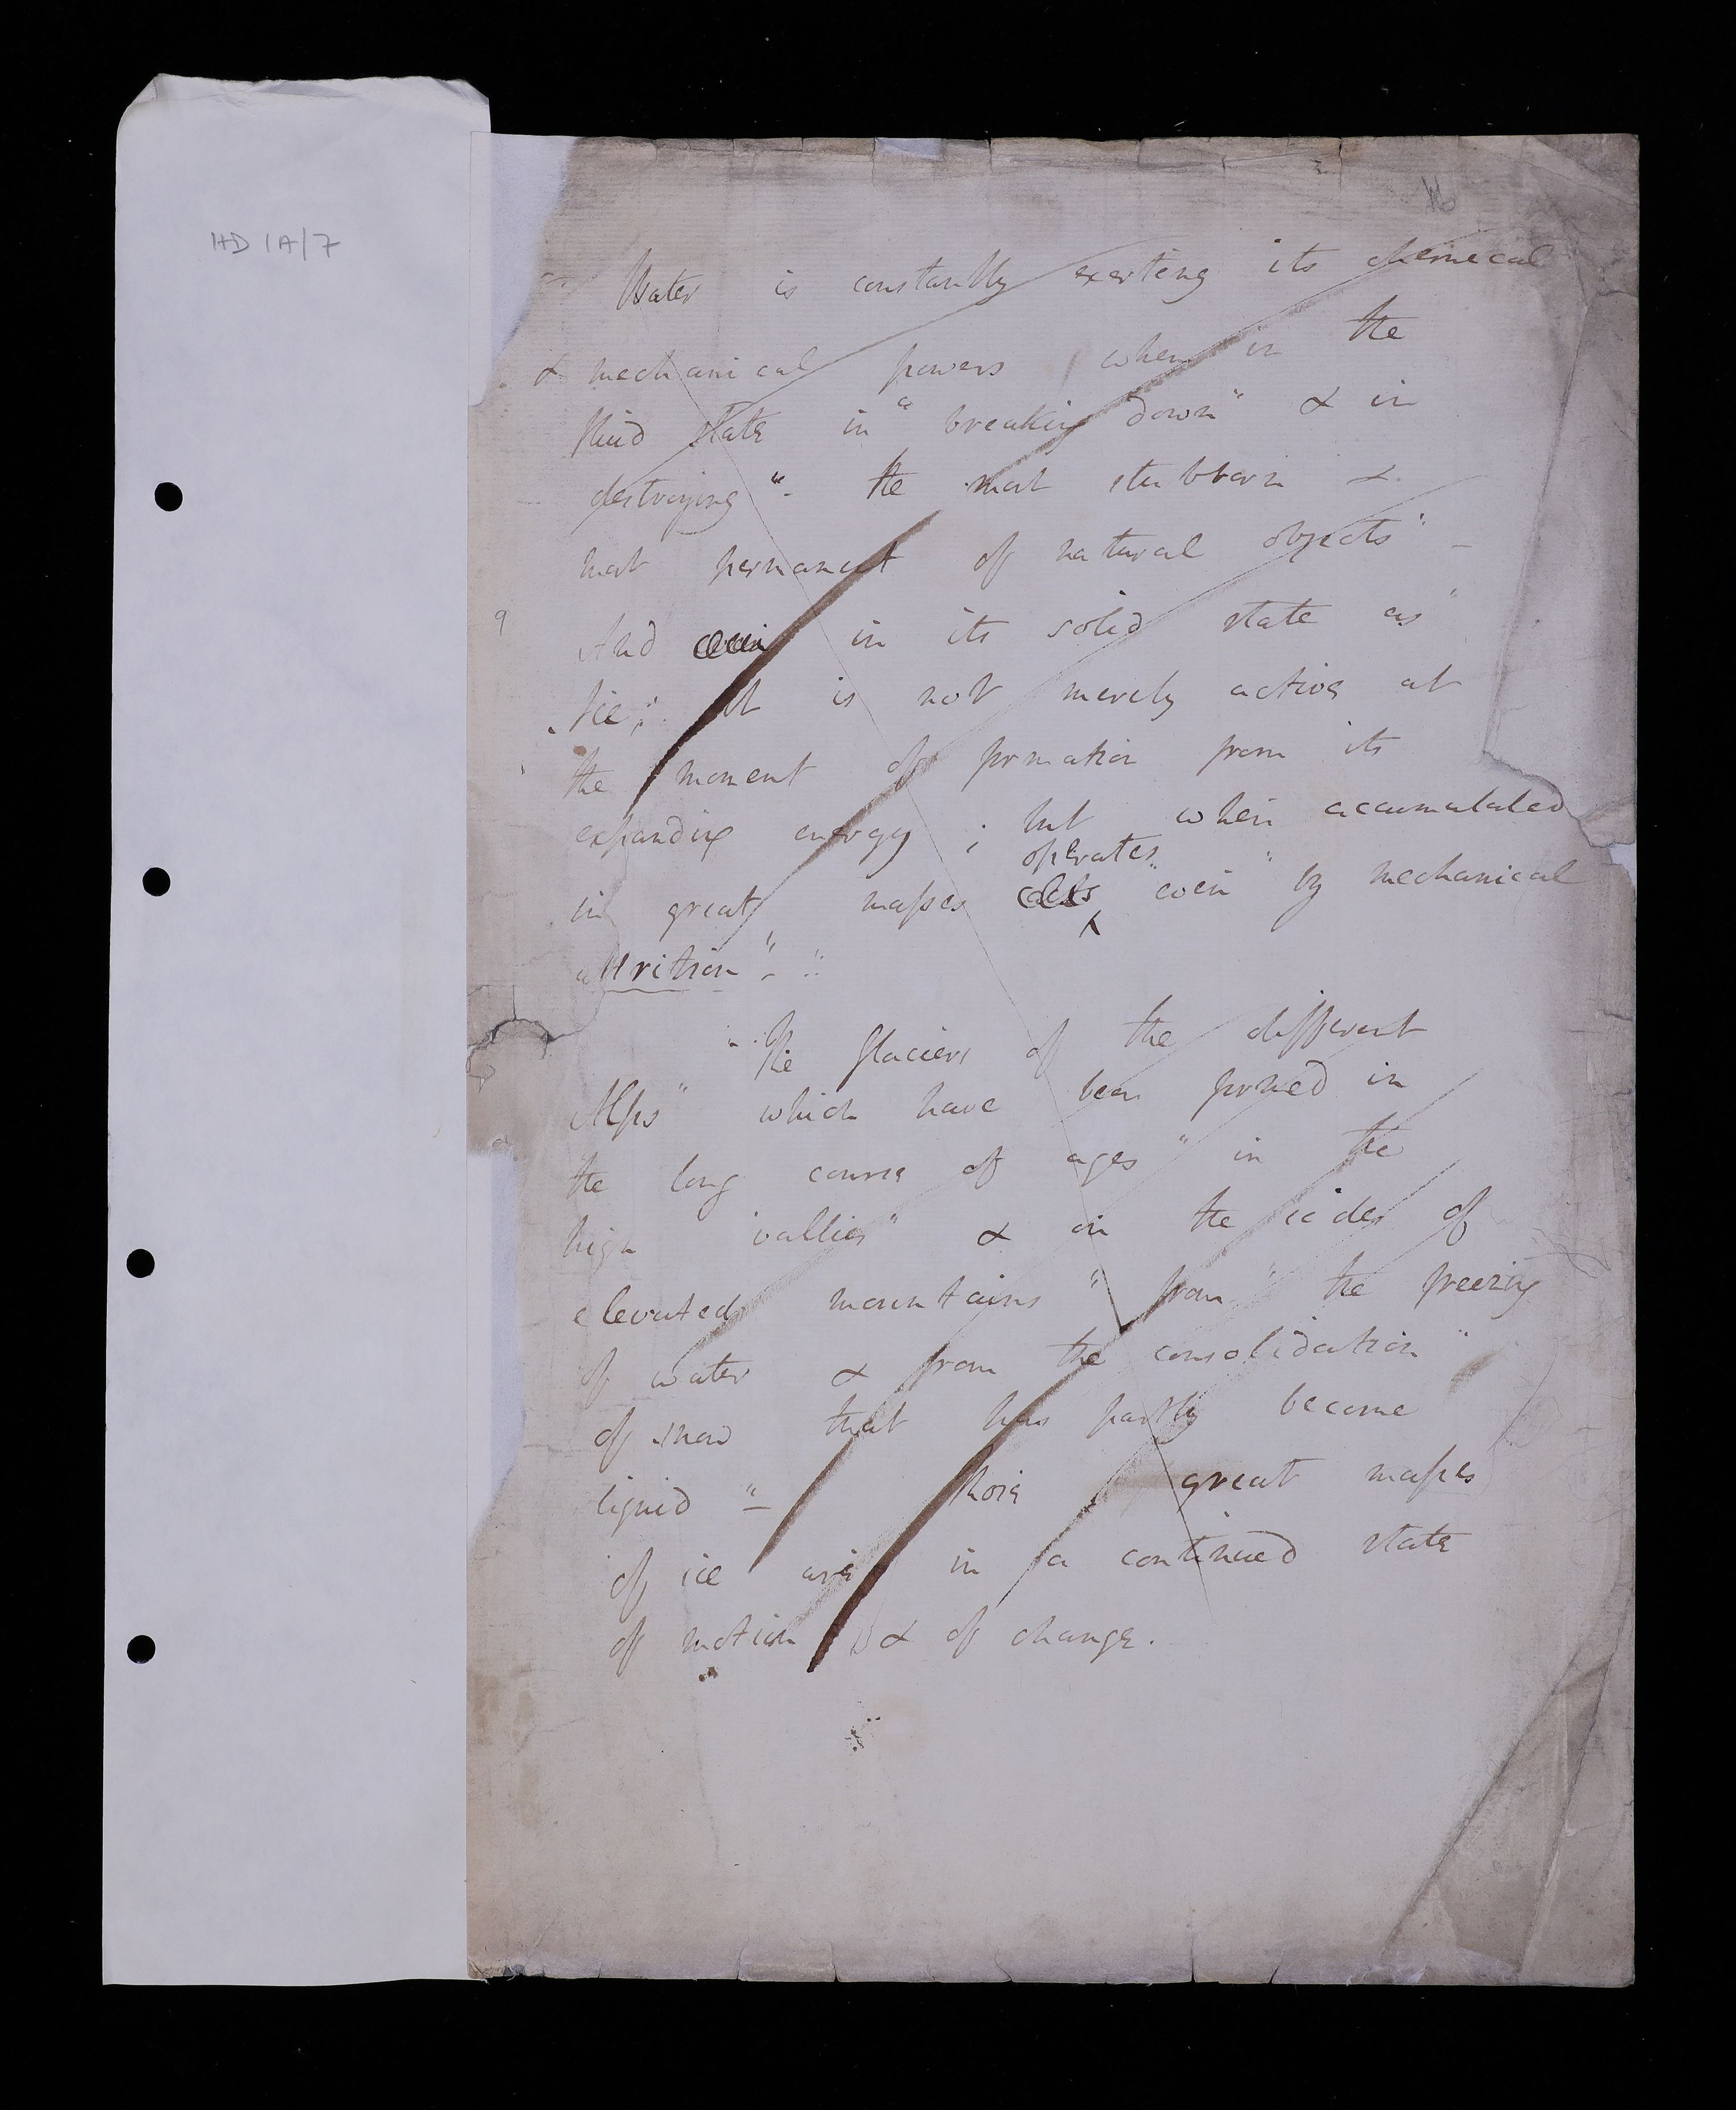 HD 1A/7
Water is constantly exerting its chemical
& mechanical powers when in the
fluid state in "breaking down" & in
destroying "- the most stubborn &
most permanent of natural objects" -
9
And even in its solid state as "
Ice; it is not merely active at
the moment of formation from its
expanding energy; but when accumulated
operates
in great masses acts even "by mechanical
attrition" -
"The Glaciers of the different
Alps" which have been formed in
the long course of ages" in the
high vallies" & on the sides of
elevated mountains" from" the freezing
of water & from the consolidation"
of snow that has partly become
liquid "- Those great masses
of ice are in a continued state
of motion & of change.